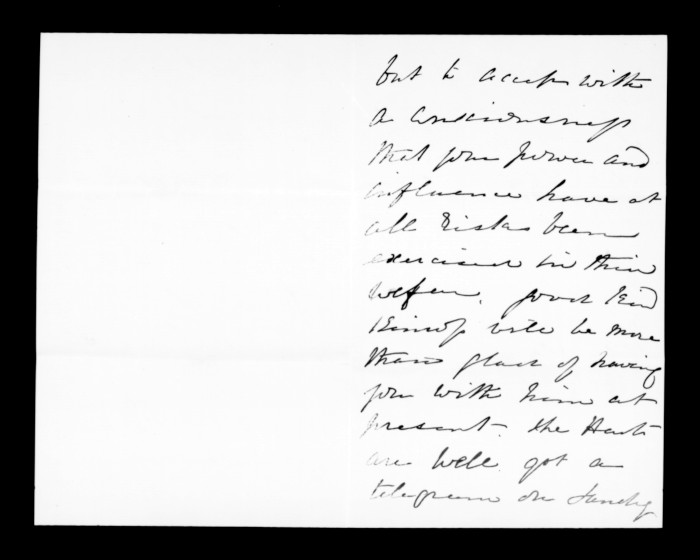 but to accept with
a consciousness
that your power and
influence have at
all risks been
exercised in their
welfare. good kind
Bishop will be more
than glad of having
you with him at
present. the
are well got a
telegram on Sunday